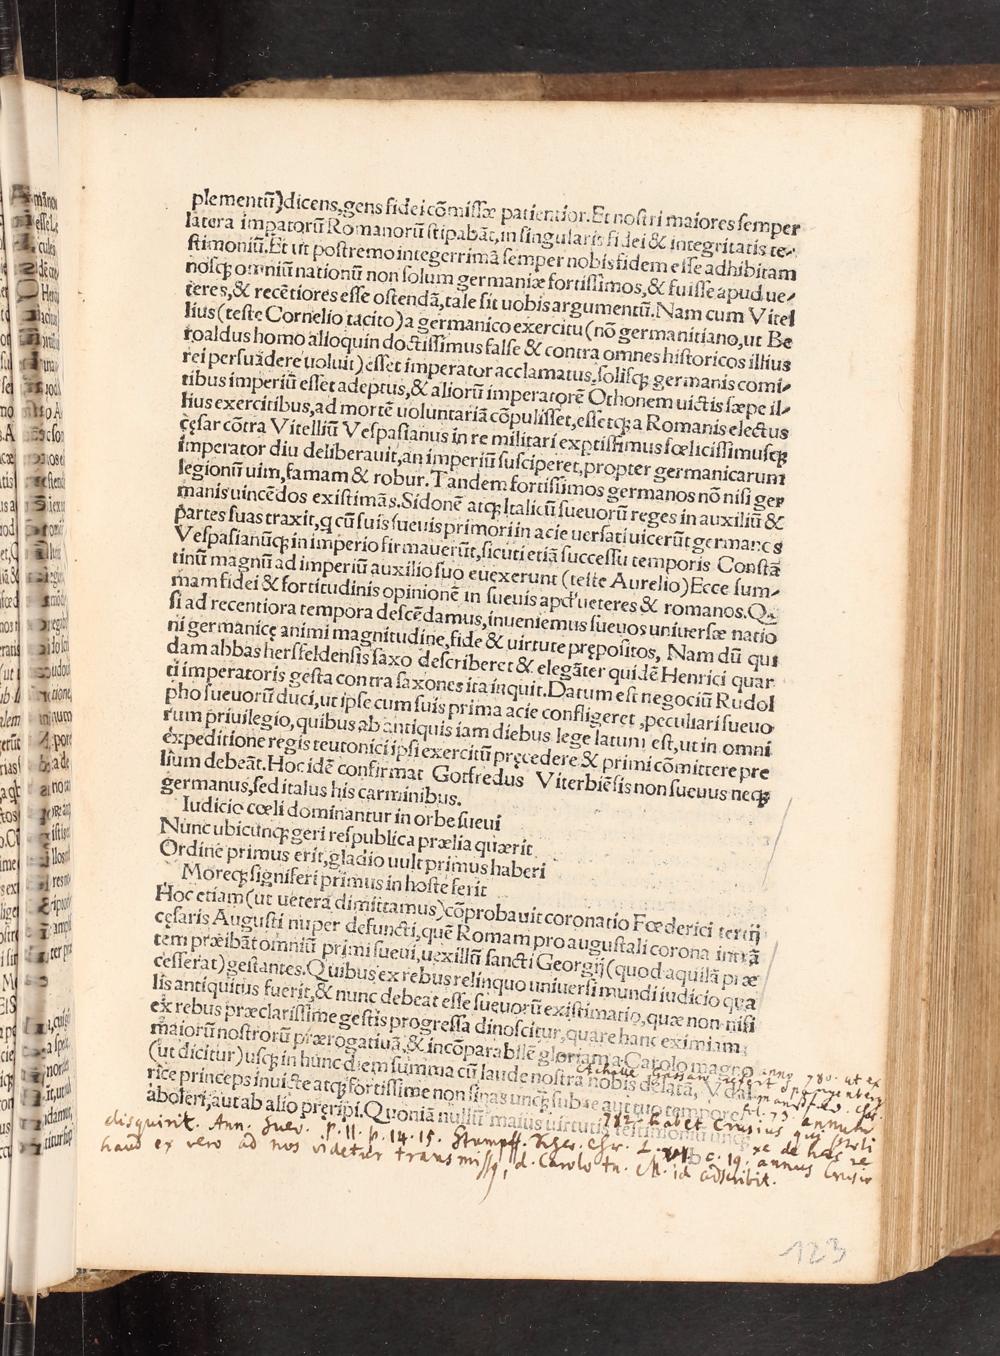 plementū)dicens,gens fidei cōmissæ patientior.Et nostri maiores semper
latera impatorū Romanorū stipabāt,in singularis fidei & integritatis te-
stimoniū.Et ut postremo integerrimā semper nobis fidem esse adhibitam
nosq; omniū nationū non solum germaniæ fortissimos,& fuisse apud ue-
teres,& recētiores esse ostendā,tale sit uobis argumentū. Nam cum Vitel
lius (teste Cornelio tacito) a germanico exercitu (nō germanitiano,ut Be
roaldus homo alioquin doctissimus false & contra omnes historicos illius
rei persuadere uoluit) esset imperator acclamatus,solisq; germanis comi-
tibus imperiū esset adeptus,& aliorū imperatorē Othonem uictis sæpe il-
lius exercitibus,ad mortē uoluntariā cōpulisset,essetq; a Romanis electus
cęsar cōtra Vitelliū Vespasianus in re militari exptissimus fœlicissimusq;
imperator diu deliberauit,an imperiū susciperet,propter germanicarum
legionū uim,famam & robur. Tandem fortissimos germanos nō nisi ger
manis uincēdos existimās.Sidonē atq; Italicū sueuorū reges in auxiliū &
partes suas traxit,q cū suis sueuis primori in acie uersati uicerūt germanos
Vespasianūq; in imperio firmauerūt,sicuti etiā successu temporis Constā
tinū magnū ad imperiū auxilio suo euexerunt (teste Aurelio) Ecce sum-
mam fidei & fortitudinis opinionē in sueuis apd' ueteres & romanos.Q
si ad recentiora tempora descēdamus,inueniemus sueuos uniuersæ natio
ni germanicę animi magnitudine,fide & uirtute prępositos, Nam dū qui
dam abbas hersfeldensis saxo describeret & elegāter quidē Henrici quar
ti imperatoris gesta contra saxones ita inquit.Datum est negociū Rudol
pho sueuorū duci,ut ipse cum suis prima acie confligeret ,peculiari sueuo
rum priuilegio,quibus ab antiquis iam diebus lege latum est,ut in omni
expeditione regis teutonici ipsi exercitū pręcedere & primi cōmittere pre
lium debeāt.Hoc idē confirmat Gotfredus Viterbiēsis non sueuus neq;
germanus,sed italus his carminibus.
Iudicio cœli dominantur in orbe sueui
Nunc ubicunq; geri respublica prælia quærit
Ordine primus erit,gladio uult primus haberi
Moreq; signiferi primus in hoste ferit
Hoc etiam (ut uetera dimittamus) cōprobauit coronatio Fœderici tertij
cęsaris Augusti nuper defuncti,quē Romam pro augustali corona intrā
tem præibāt omniū primi sueui,uexillū sancti Georgij (quod aquilā præ
cesserat) gestantes.Quibus ex rebus relinquo uniuersi mundi iudicio qua
lis antiquitus fuerit,& nunc debeat esse sueuorū existimatio,quæ non nisi
ex rebus præclarissime gestis progressa dinoscitur,quare hanc eximiam
maiorū nostrorū prærogatiuā,& incōparabilē gloriam a Carolo magno
(ut dicitur) usq; in hunc diem summa cū laude nostra nobis delatā, Vdal
rice princeps inuicte atq; fortissime non sinas unq; sub se aut tuo tempore
aboleri,aut ab alio preripi.Quoniā nullū maius uirtutis testimoniū unq
Achille Gassari asserit anno 780. ut ex
Spangenberg
mansfeld. Chr.
fol. 73. annum
782. habet Crusius qui
disquirit. Ann. Suev. p. II. p. 14. 15. Stumpff. Chr. L. c. 19. de hac re
haud ex vero ad nos videtur transmissa, d. Carolo M. id adscribit. annus Crusio
123